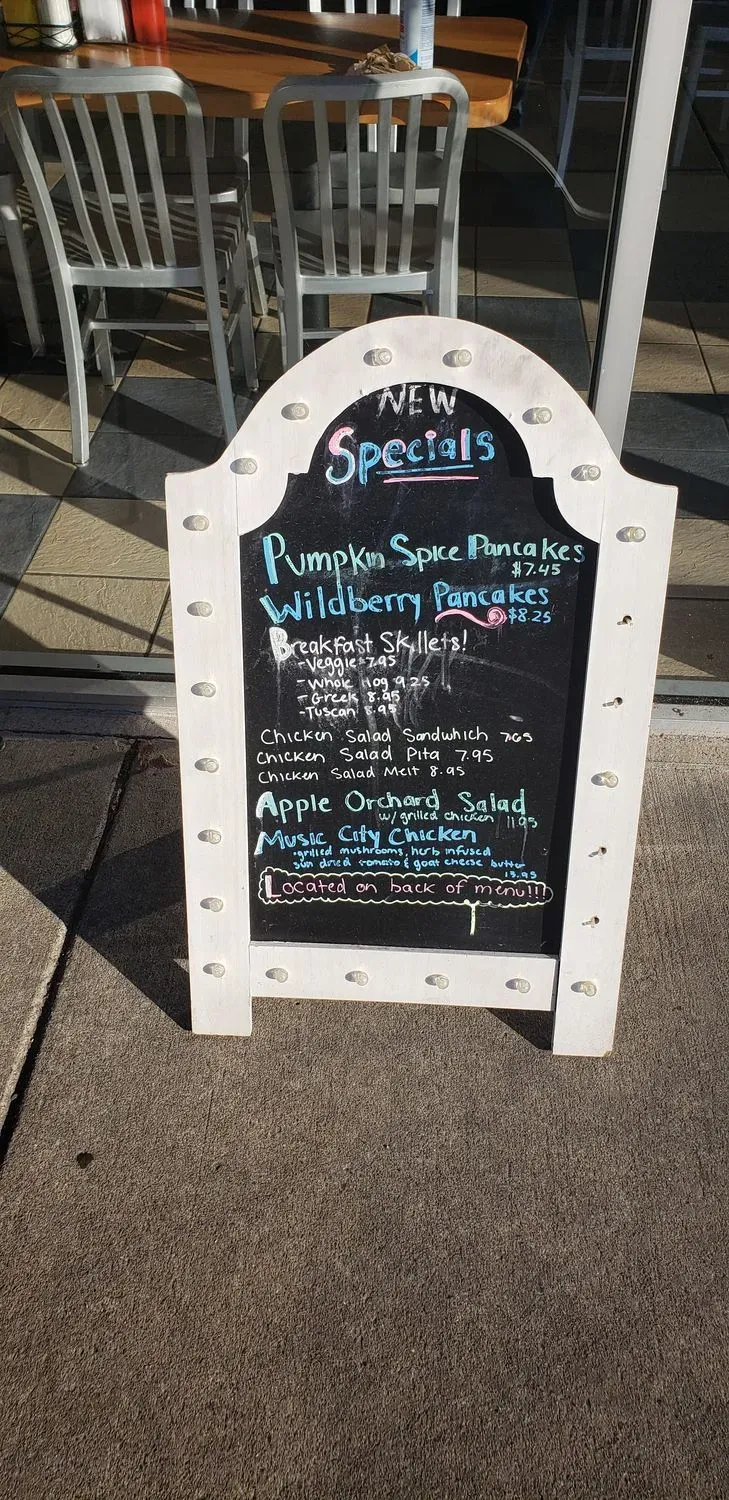 NEW
Specials
Pumpkin Spice Pancakes
$7.45
Wildberry Pancakes
$8.25
Breakfast Skillets!
-Veggie 7.95
-Whole Hog 9.25
-Greek 8.95
-Tuscan 8.95
Chicken Salad Sandwhich 7.65
Chicken Salad Pita 7.95
Chicken Salad Melt 8.95
Apple Orchard Salad
w/ grilled chicken 11.95
Music City Chicken
·grilled mushrooms, herb infused
sun dried tomato & goat cheese butter
13.95
Located on back of menu!!!